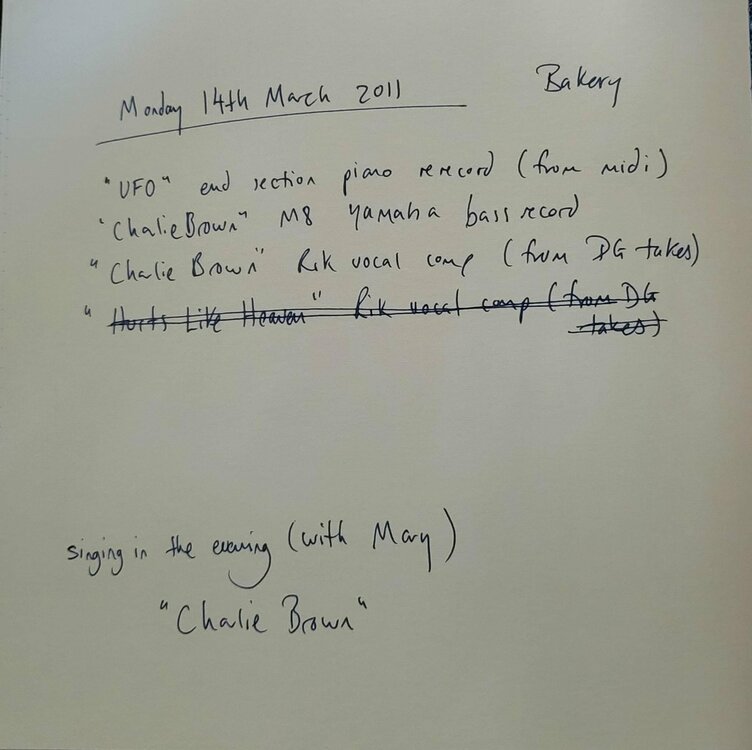 Monday 14th March 2011 Bakery
"UFO" end section piano rerecord (from midi)
"Chalie Brown" M8 Yamaha bass record
"Chalie Brown" Rik vocal comp (from DG takes)
"Hurts Like Heaven" Rik vocal comp (from DG
takes)
singing in the evening (with Mary)
"Chalie Brown"